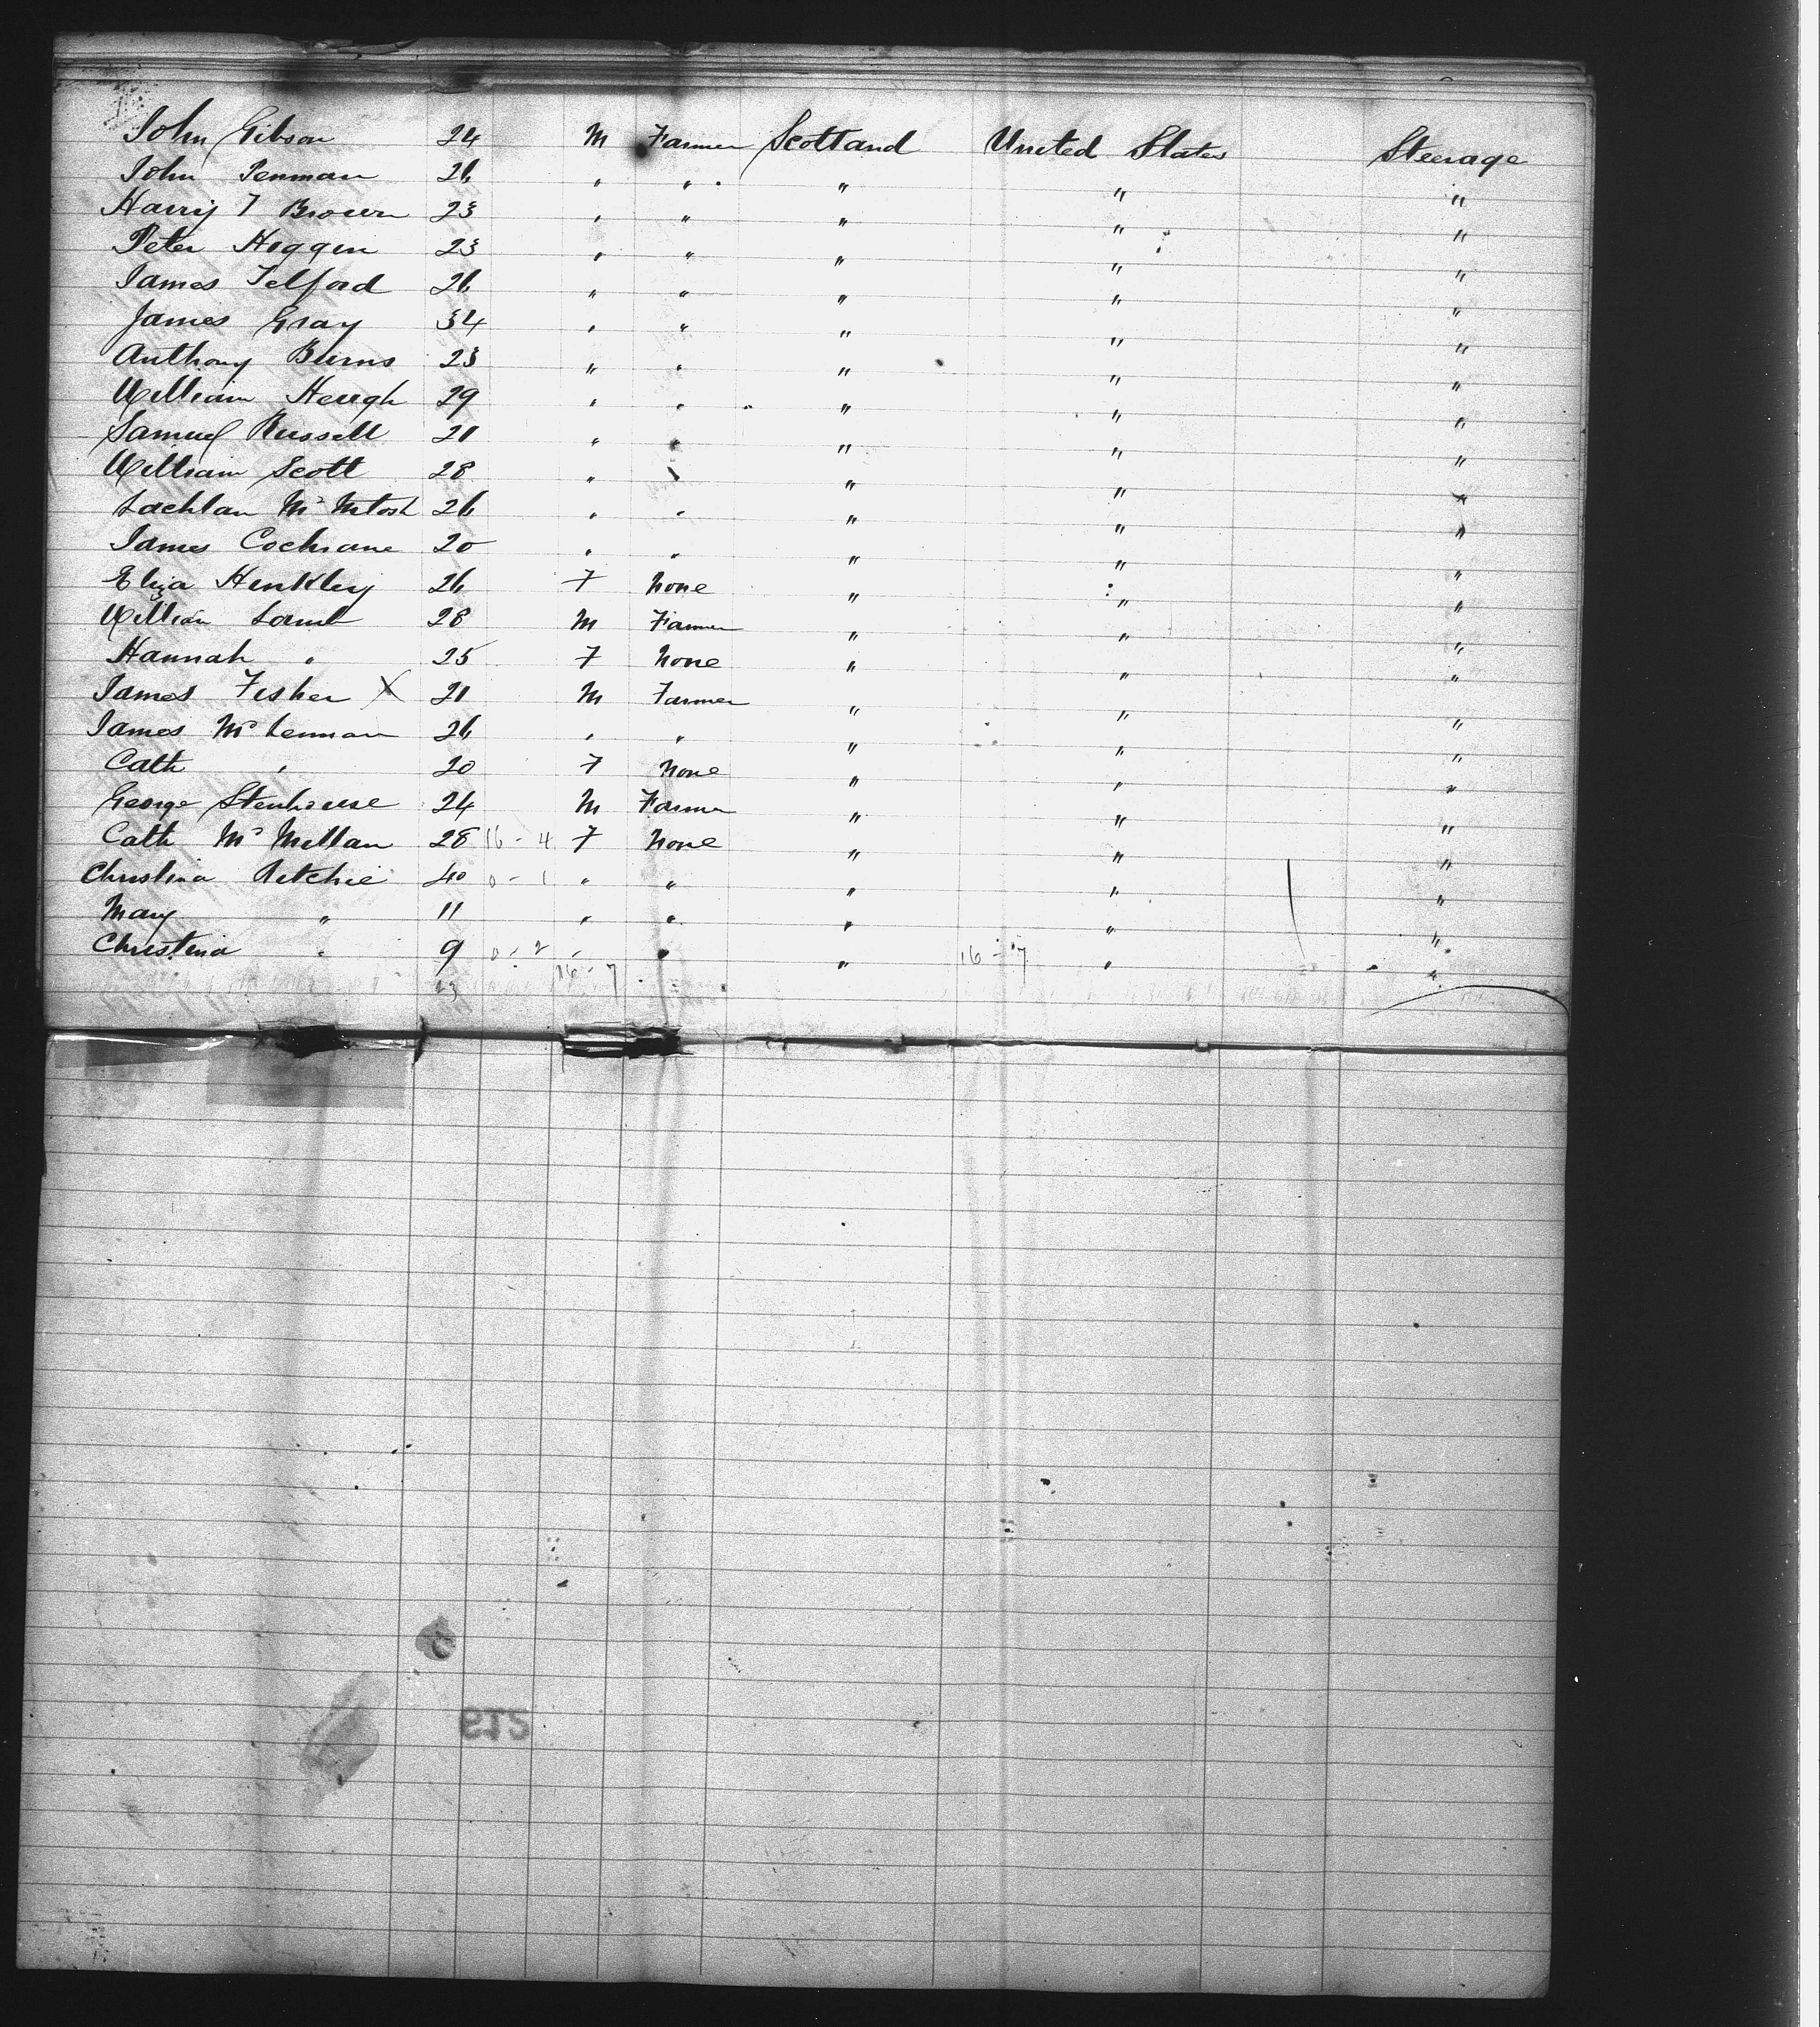 John Gibson 24 M Farmer Scotland United States Steerage
John Penman 26 " " " " "
Harry T Brown 23 " " " " "
Peter Hoggen 23 " " " " "
James Telford 26 " " " " "
James Gray 34 " " " " "
Anthony Burns 23 " " " " "
William Heugh 29 " " " " "
Samuel Russell 21 " " " " "
William Scott 28 " " " " "
Lachlan McIntosh 26 " " " " "
James Cochrane 20 " " " " "
Eliza Henkley 26 F None " " "
William 28 M Farmer " " "
Hannah " 25 F None " " "
James Fisher X 21 M Farmer " " "
James McLennan 26 " " " " "
Cath " 20 F None " " "
George Stenhouse 24 M Farmer " " "
Cath McMillan 28 16-4 F None " " "
Christina Ritchie 40 0-1 " " " " "
Mary " 11 " " " " "
Christina " 9 0-2 " " " 16-7 " "
23 16-7
612